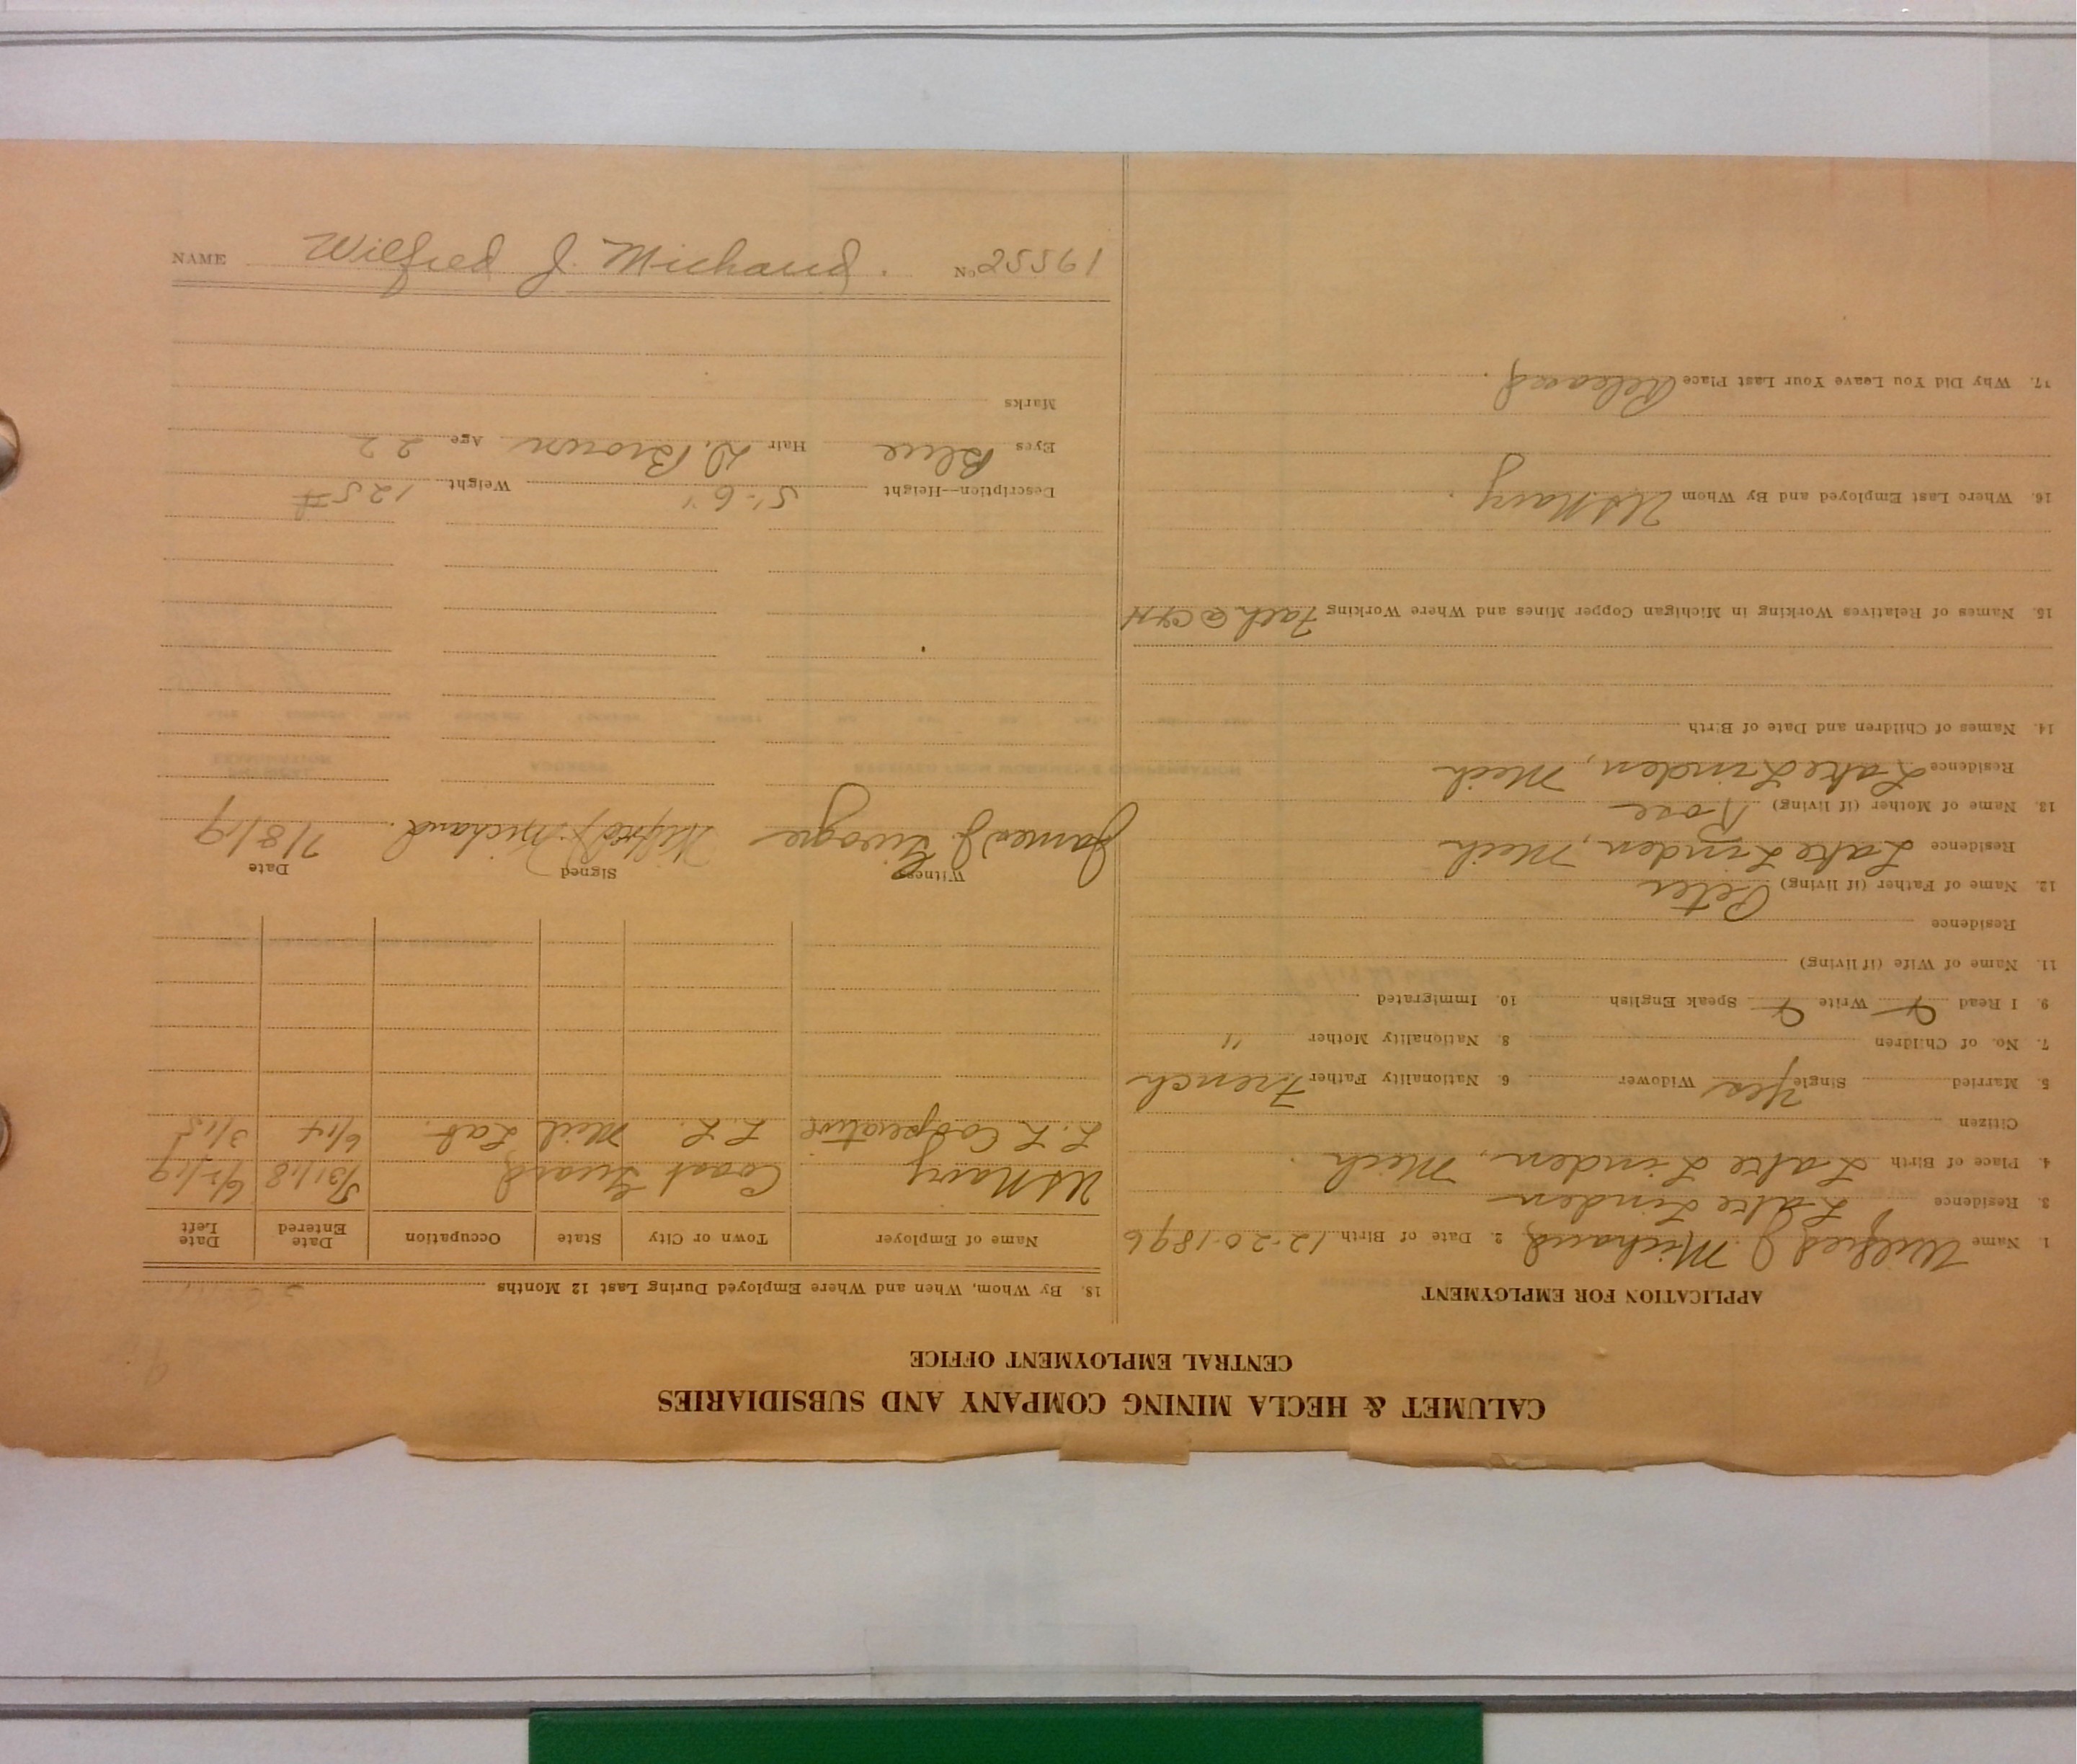 CALUMET & HECLA MINING COMPANY AND SUBSIDIARIES
CENTRAL EMPLOYMENT OFFICE
APPLICATION FOR EMPLOYMENT
1. Name Wilfred J. Michaud 2. Date of Birth 12-20-1896
3. Residence Lake Linden
4. Place of Birth Lake Linden, Mich.
Citizen
5. Married Single Yes Widower 6. Nationality Father French
7. No. of Children 8. Nationality Mother "
9. I Read Write Speak English 10. Immigrated
11. Name of Wife (if living)
Residence
12. Name of Father (if living) Peter
Residence Lake Linden, Mich
13. Name of Mother (if living) Rose
Residence Lake Linden, Mich
14. Names of Children and Date of Birth
15. Names of Relatives Working in Michigan Copper Mines and Where Working Fath @ C&H
16. Where Last Employed and By Whom US Navy.
17. Why Did You Leave Your Last Place Released.
18. By Whom, When and Where Employed During Last 12 Months
Name of Employer Town or City State Occupation Date Entered Date Left
US Navy Coast Guard 5/31/18 6/2/19
L.L. Cooperative L.L. Mich Lab. 6/14 3/15
Witness Signed Date
James J. Wilfred J. Michaud. 7/8/19
Description—Height 5'-6" Weight 125 #
Eyes Blue Hair D. Brown Age 22
Marks
NAME Wilfred J. Michaud. No 25561